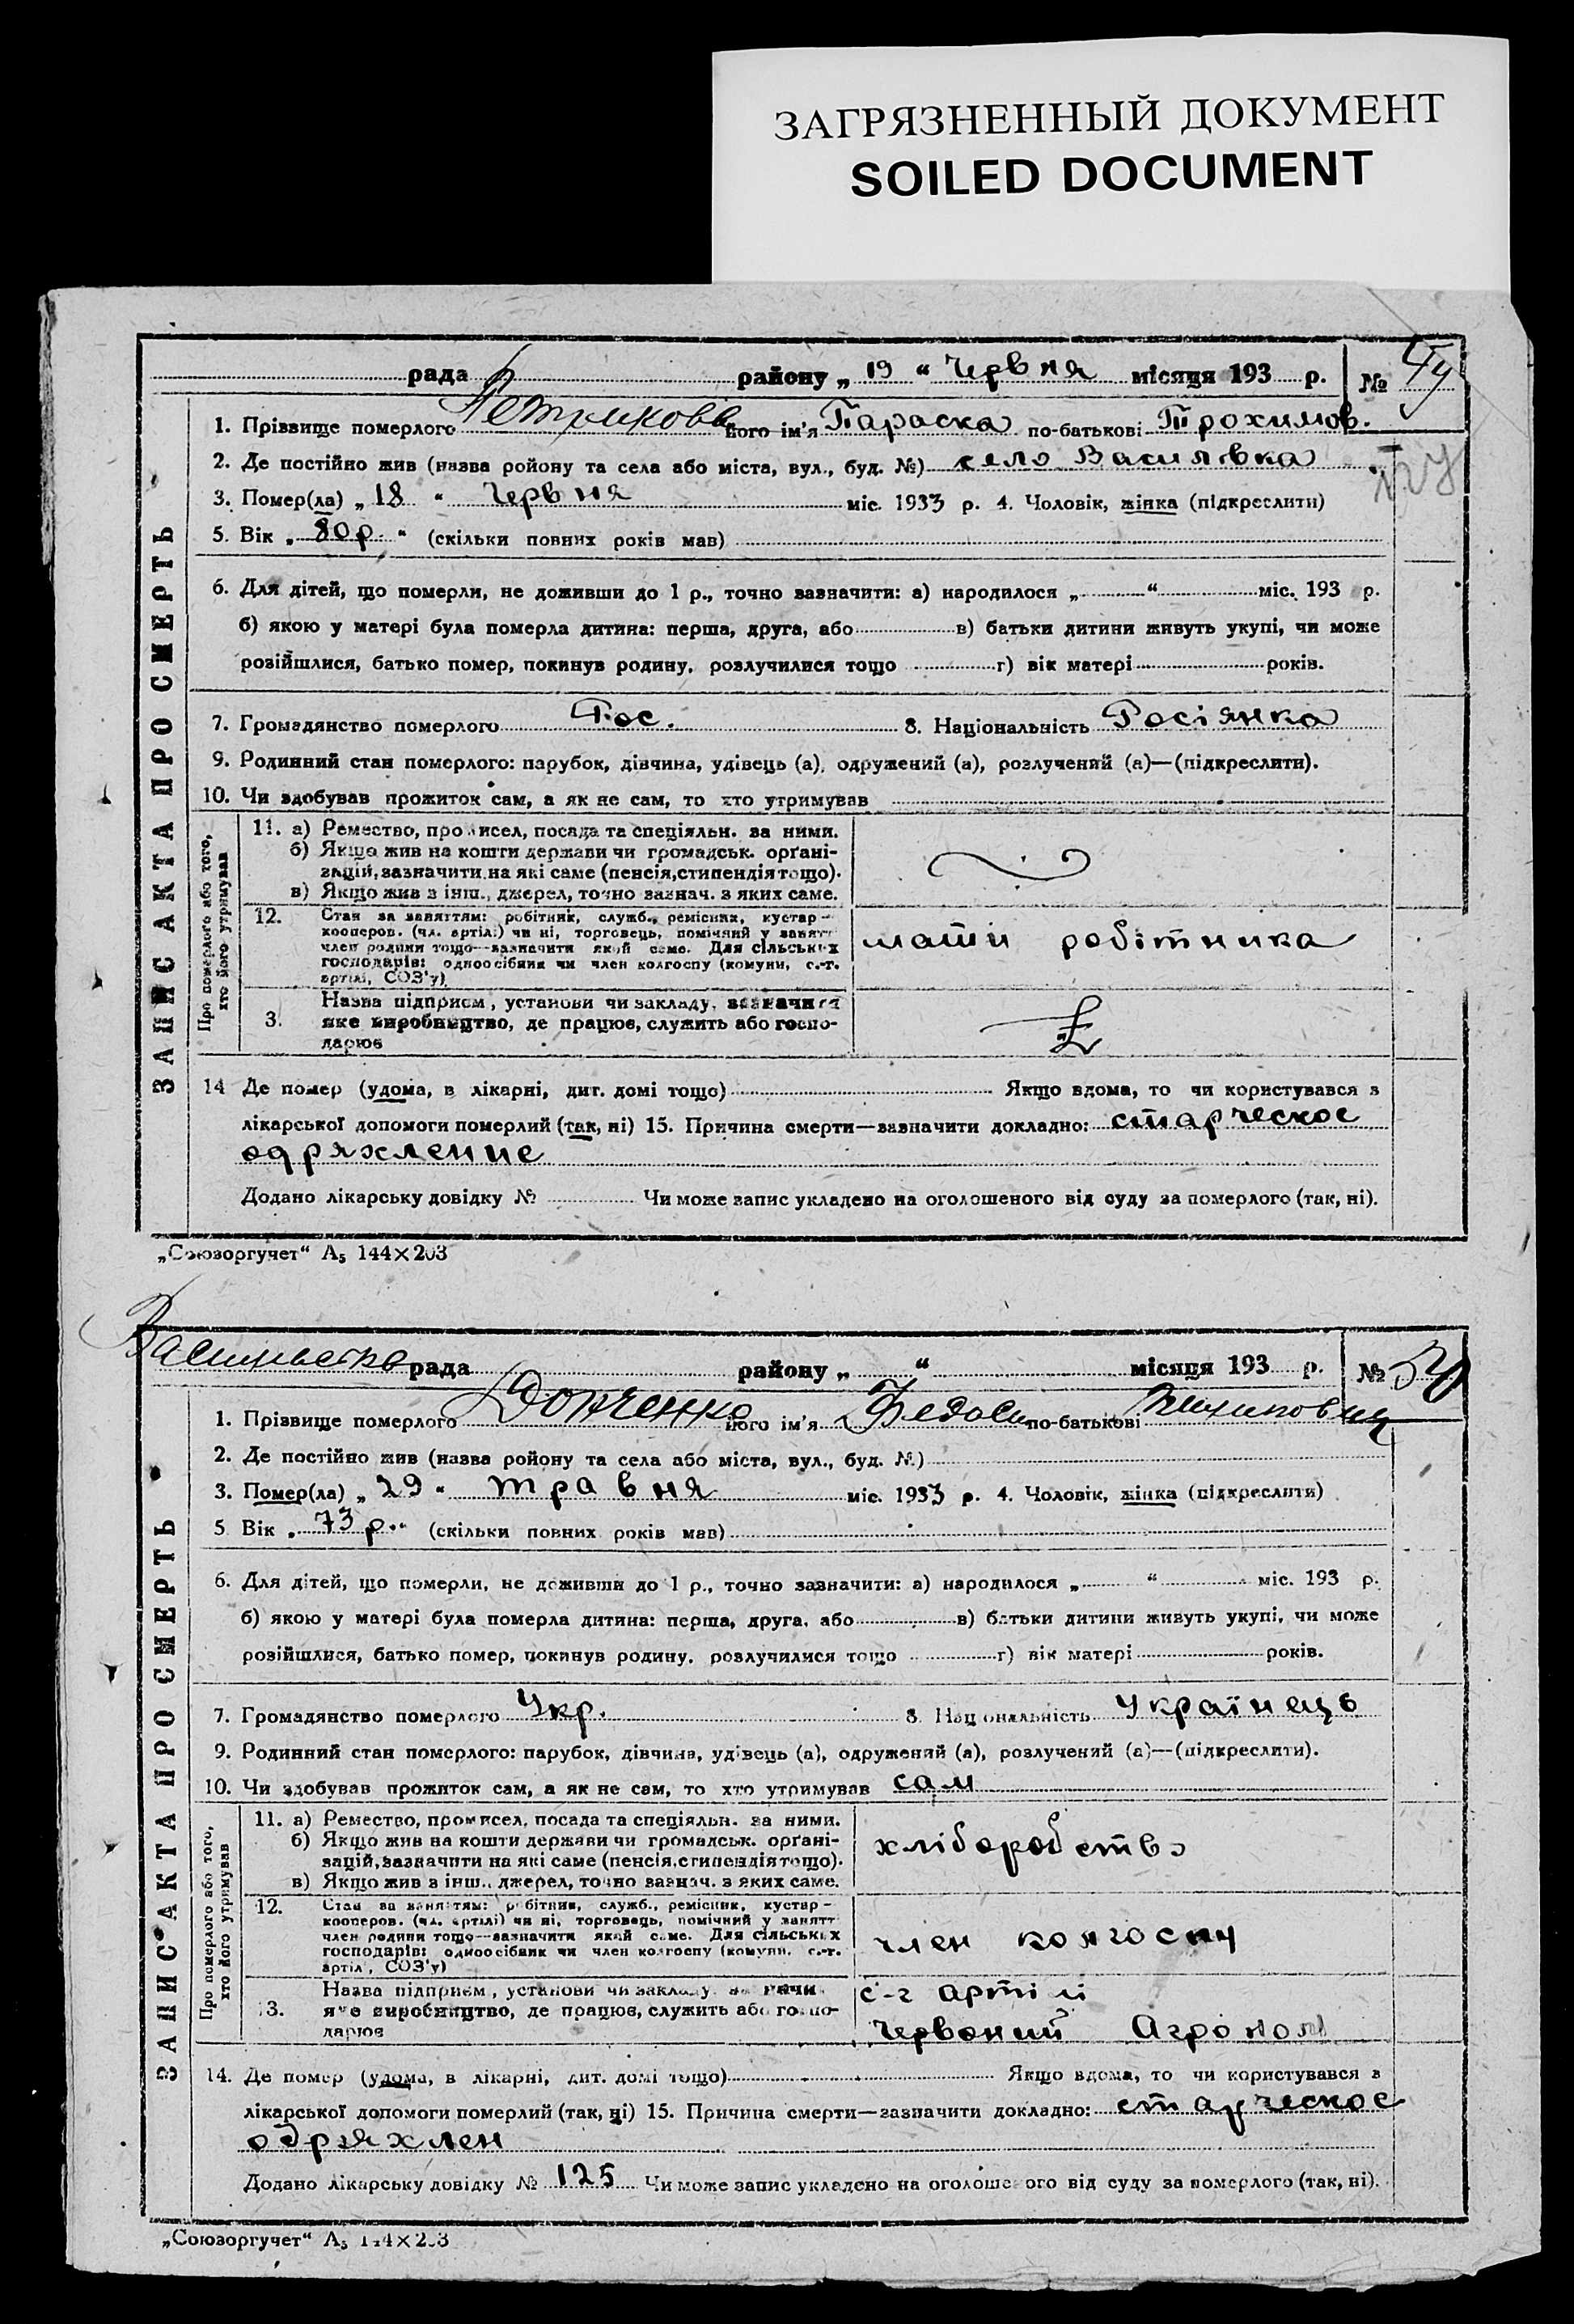 ЗАГРЯЗНЕННЫЙ ДОКУМЕНТ
SOILED DOCUMENT
рада району „ 19 “ Червня місяця 193 р. №
1. Прізвище померлого Петрикова його ім'я Параска по-батькові Трохимов.
2. Де постійно жив (назва ройону та села або міста, вул., буд. №) село Василівка
3. Помер(ла) „ 18 “ Червня міс. 1933 р. 4. Чоловік, жінка (підкреслити)
5. Вік „ 80 р. “ (скільки повних років мав)
6. Для дітей, що померли, не доживши до 1 р., точно зазначити: а) народилося „ “ міс. 193 р.
б) якою у матері була померла дитина: перша, друга, або в) батьки дитини живуть укупі, чи може
розійшлися, батько помер, покинув родину, розлучилися тощо г) вік матері років.
7. Громадянство померлого Рос. 8. Національність Росіянка
9. Родинний стан померлого: парубок, дівчина, удівець (а), одружений (а), розлучений (а)—(підкреслити).
10. Чи здобував прожиток сам, а як не сам, то хто утримував
ЗАПИС АКТА ПРО СМЕРТЬ
Про померлого або того, хто його утримував
11. а) Ремество, промисел, посада та спеціяльн. за ними.
б) Якщо жив на кошти держави чи громадськ. орґані-
зацій, зазначити на які саме (пенсія, стипендія тощо).
в) Якщо жив з інш., джерел, точно зазнач. з яких саме.
12. Стан за заняттям: робітник, служб., ремісник, кустар-
кооперов. (чл. артілі) чи ні, торговець, помічний у занятт
член родини тощо—зазначити який саме. Для сільських
господарів: одноосібник чи член колгоспу (комуни, с.-г.
артілі, СОЗ'у)
мати робітника
3. Назва підприєм, установи чи закладу, зазначити
яке виробництво, де працює, служить або госпо-
дарює
14 Де помер (удома, в лікарні, дит. домі тощо) Якщо вдома, то чи користувався з
лікарської допомоги померлий (так, ні) 15. Причина смерти—зазначити докладно: старческое
одряхление
Додано лікарську довідку № Чи може запис укладено на оголошеного від суду за померлого (так, ні).
„Союзоргучет“ А₅ 144×203
рада району „ “ місяця 193 р. №
1. Прізвище померлого його ім'я Федось по-батькові
2. Де постійно жив (назва ройону та села або міста, вул., буд. №)
3. Помер(ла) „ 29 “ травня міс. 1933 р. 4. Чоловік, жінка (підкреслити)
5 Вік „ 73 р. “ (скільки повних років мав)
6. Для дітей, що померли, не доживши до 1 р., точно зазначити: а) народилося „ “ міс. 193 р.
б) якою у матері була померла дитина: перша, друга, або в) батьки дитини живуть укупі, чи може
розійшлися, батько помер, покинув родину, розлучилися тощо г) вік матері років.
7. Громадянство померлого Укр. 8. Національність Українець
9. Родинний стан померлого: парубок, дівчина, удівець (а), одружений (а), розлучений (а)—(підкреслити).
10. Чи здобував прожиток сам, а як не сам, то хто утримував сам
ЗАПИС АКТА ПРО СМЕРТЬ
Про померлого або того, хто його утримував
11. а) Ремество, промисел, посада та спеціяльн. за ними.
б) Якщо жив на кошти держави чи громадськ. орґані-
зацій, зазначити на які саме (пенсія, стипендія тощо).
в) Якщо жив з інш., джерел, точно зазнач. з яких саме.
хліборобство
12. Стан за заняттям: робітник, служб., ремісник, кустар-
кооперов. (чл. артілі) чи ні, торговець, помічний у занятт
член родини тощо—зазначити який саме. Для сільських
господарів: одноосібник чи член колгоспу (комуни, с.-г.
артілі, СОЗ'у)
член колгоспу
3. Назва підприєм, установи чи закладу, зазначи
яке виробництво, де працює, служить або госпо-
дарює
с-г артілі
Червоний Агроном
14. Де помер (удома, в лікарні, дит. домі тощо) Якщо вдома, то чи користувався з
лікарської допомоги померлий (так, ні) 15. Причина смерти—зазначити докладно: старческое
одряхлен
Додано лікарську довідку № 125 Чи може запис укладено на оголошеного від суду за померлого (так, ні).
„Союзоргучет“ А₅ 144×203